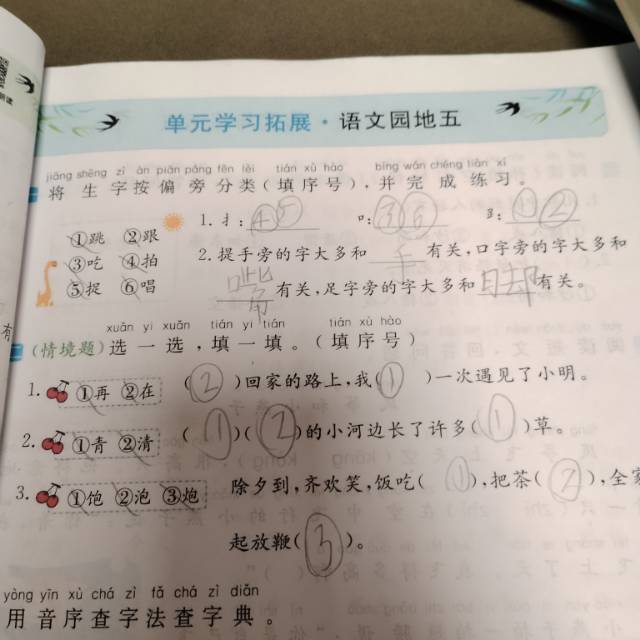 单元学习拓展·语文园地五
jiāng shēng zì àn piān páng fēn lèi tián xù hào bìng wán chéng liàn xí
将生字按偏旁分类(填序号),并完成练习。
①跳 ②跟
③吃 ④拍
⑤捉 ⑥唱
1.扌:④⑤ 口:③⑥ ⻊:①②
2.提手旁的字大多和手有关,口字旁的字大多和
嘴有关,足字旁的字大多和有关。
xuǎn yi xuǎn tián yi tián tián xù hào
(情境题)选一选,填一填。(填序号)
1. ①再 ②在 (②)回家的路上,我(①)一次遇见了小明。
2. ①青 ②清 (①)(②)的小河边长了许多(①)草。
3. ①饱 ②泡 ③炮 除夕到,齐欢笑,饭吃(①),把茶(②),全家
起放鞭(③)。
yòng yīn xù chá zì fǎ chá zì diǎn
用音序查字法查字典。